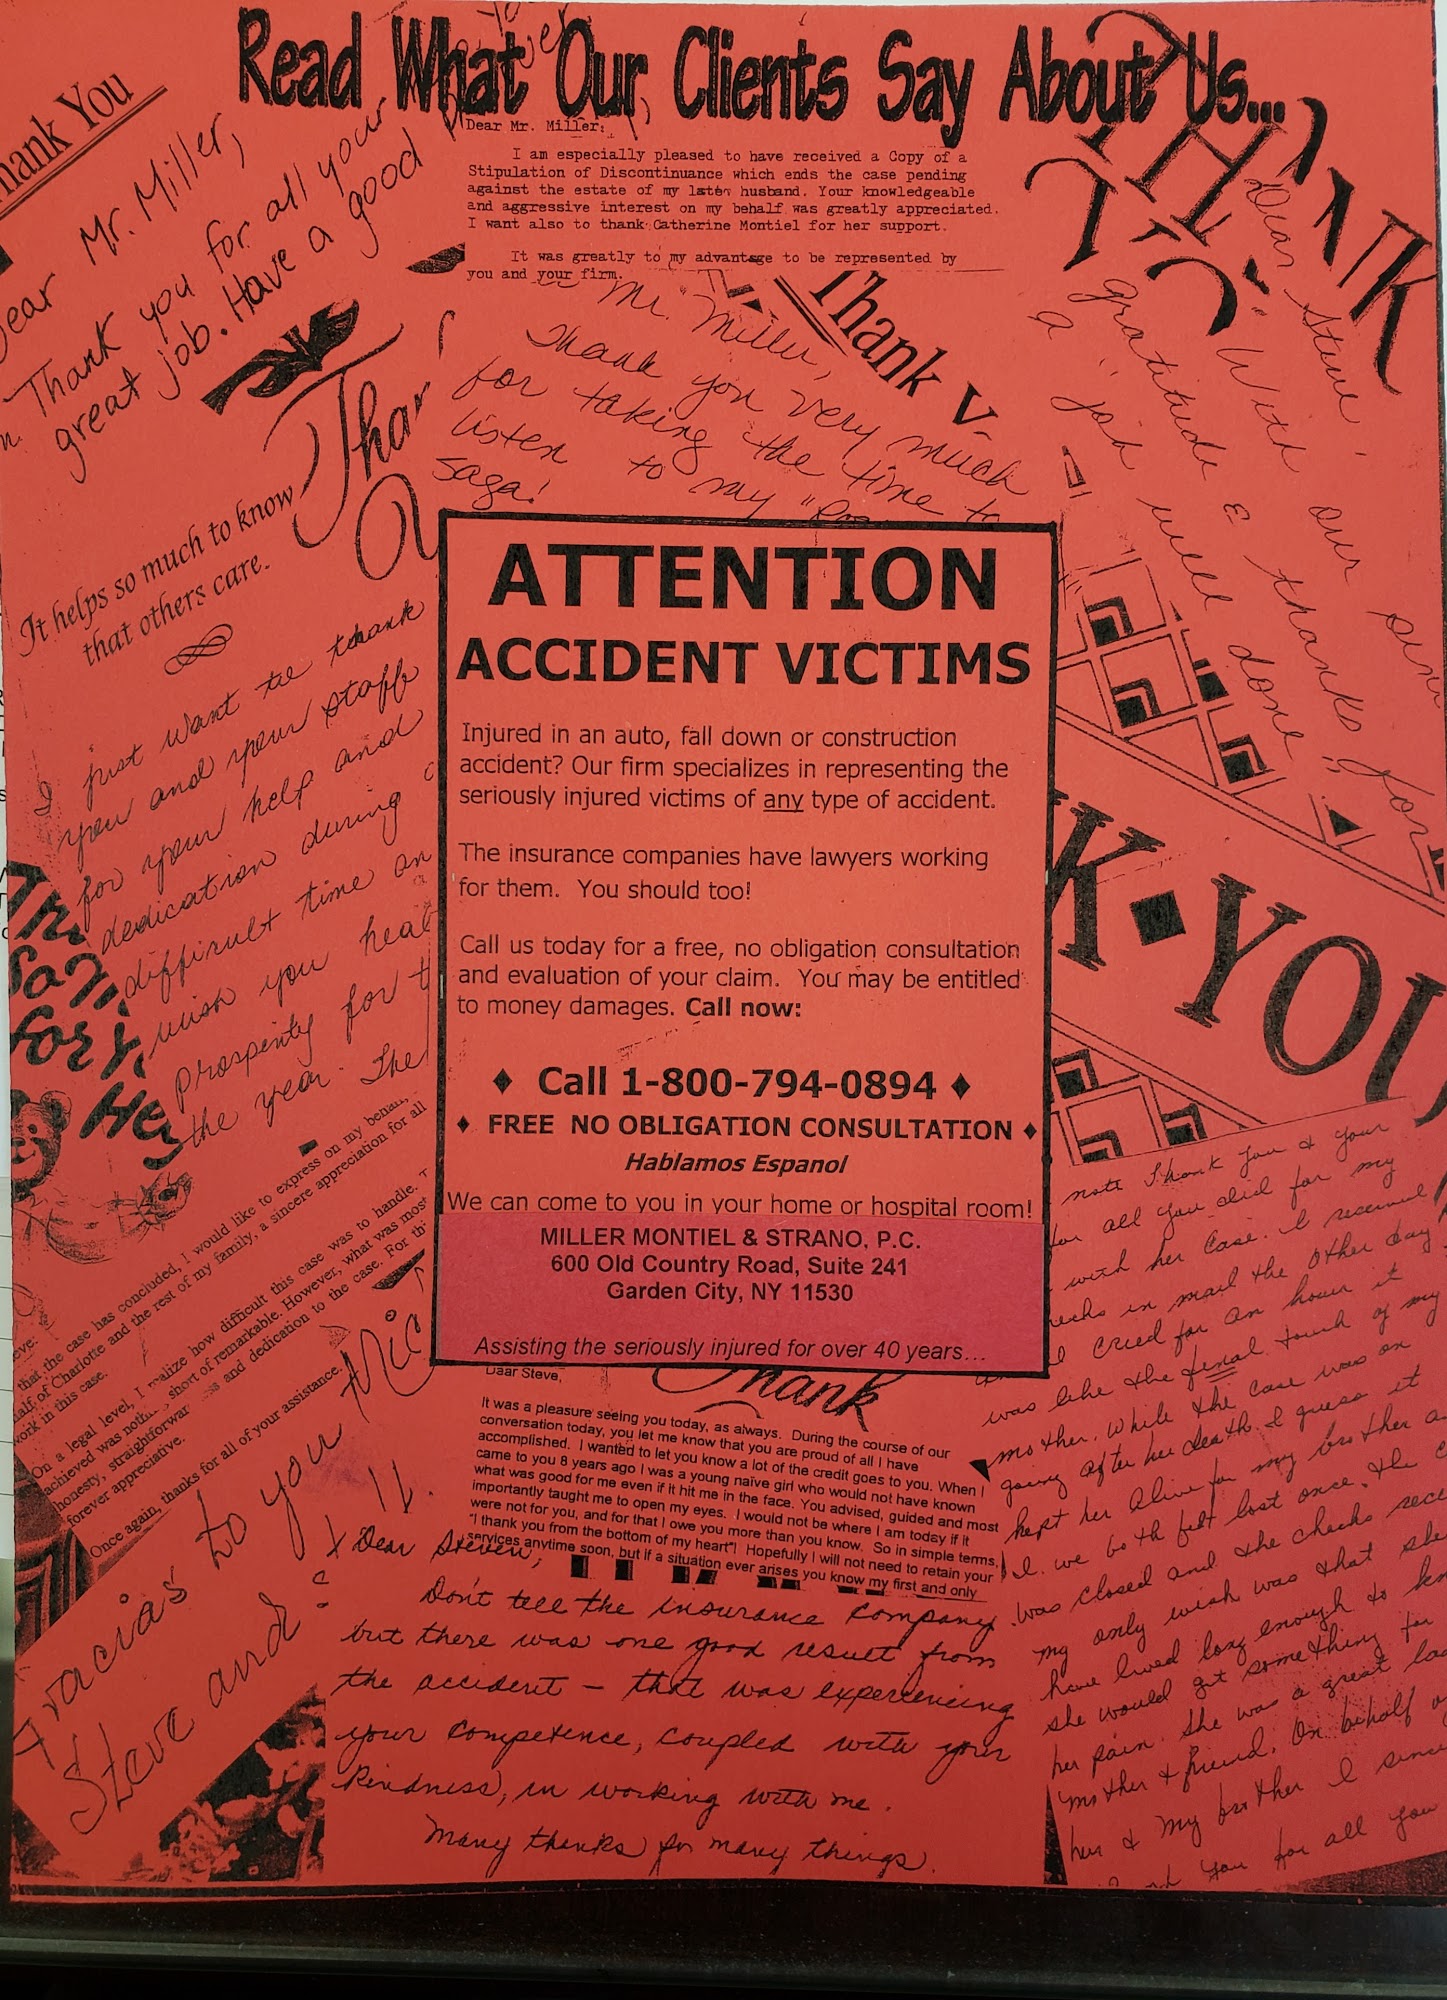 Read What Our Clients Say About Us...
Thank You
Dear Mr. Miller,
Thank you for all your
great job. Have a good
Dear Mr. Miller:
I am especially pleased to have received a Copy of a
Stipulation of Discontinuance which ends the case pending
against the estate of my late husband. Your knowledgeable
and aggressive interest on my behalf was greatly appreciated.
I want also to thank Catherine Montiel for her support.
It was greatly to my advantage to be represented by
you and your firm.
Mr. Miller,
Thank you very much
for taking the time to
listen to my
saga!
Thank
THANK
Dear Steve,
With our
gratitude & thanks for
a job well done!!
It helps so much to know
that others care.
I just want to thank
you and your staff
for your help and
dedication during
difficult time an
wish you heal
prosperity for t
the year. The
ATTENTION
ACCIDENT VICTIMS
Injured in an auto, fall down or construction
accident? Our firm specializes in representing the
seriously injured victims of any type of accident.
The insurance companies have lawyers working
for them. You should too!
Call us today for a free, no obligation consultation
and evaluation of your claim. You may be entitled
to money damages. Call now:
♦ Call 1-800-794-0894 ♦
♦ FREE NO OBLIGATION CONSULTATION ♦
Hablamos Espanol
We can come to you in your home or hospital room!
MILLER MONTIEL & STRANO, P.C.
600 Old Country Road, Suite 241
Garden City, NY 11530
Assisting the seriously injured for over 40 years...
K·YOU
that the case has concluded, I would like to express on my behalf,
half of Charlotte and the rest of my family, a sincere appreciation for all
work in this case.
On a legal level, I realize how difficult this case was to handle.
achieved was short of remarkable. However, what was most
honesty, straightforwar and dedication to the case. For th
forever appreciative.
Once again, thanks for all of your assistance.
Gracias to you
Steve and
Thank
Dear Steve,
It was a pleasure seeing you today, as always. During the course of our
conversation today, you let me know that you are proud of all I have
accomplished. I wanted to let you know a lot of the credit goes to you. When I
came to you 8 years ago I was a young naïve girl who would not have known
what was good for me even if it hit me in the face. You advised, guided and most
importantly taught me to open my eyes. I would not be where I am today if it
were not for you, and for that I owe you more than you know. So in simple terms,
"I thank you from the bottom of my heart"! Hopefully I will not need to retain your
services anytime soon, but if a situation ever arises you know my first and only
Dear Steven,
Don't tell the insurance company
but there was one good result from
the accident – that was experiencing
your competence, coupled with your
kindness, in working with me.
Many thanks for many things.
note Thank you & your
for all you did for my
with her case. I received
checks in mail the other day
cried for an hour it
was like the final touch of my
mother. While the case was on
going after her death. I guess it
kept her alive for my brother a
I. we both felt lost once. the c
was closed and the checks rece
my only wish was that she
have lived long enough to kn
she would get something for
her pain. She was a great la
mother & friend. On behalf o
her & my brother I since
you for all you